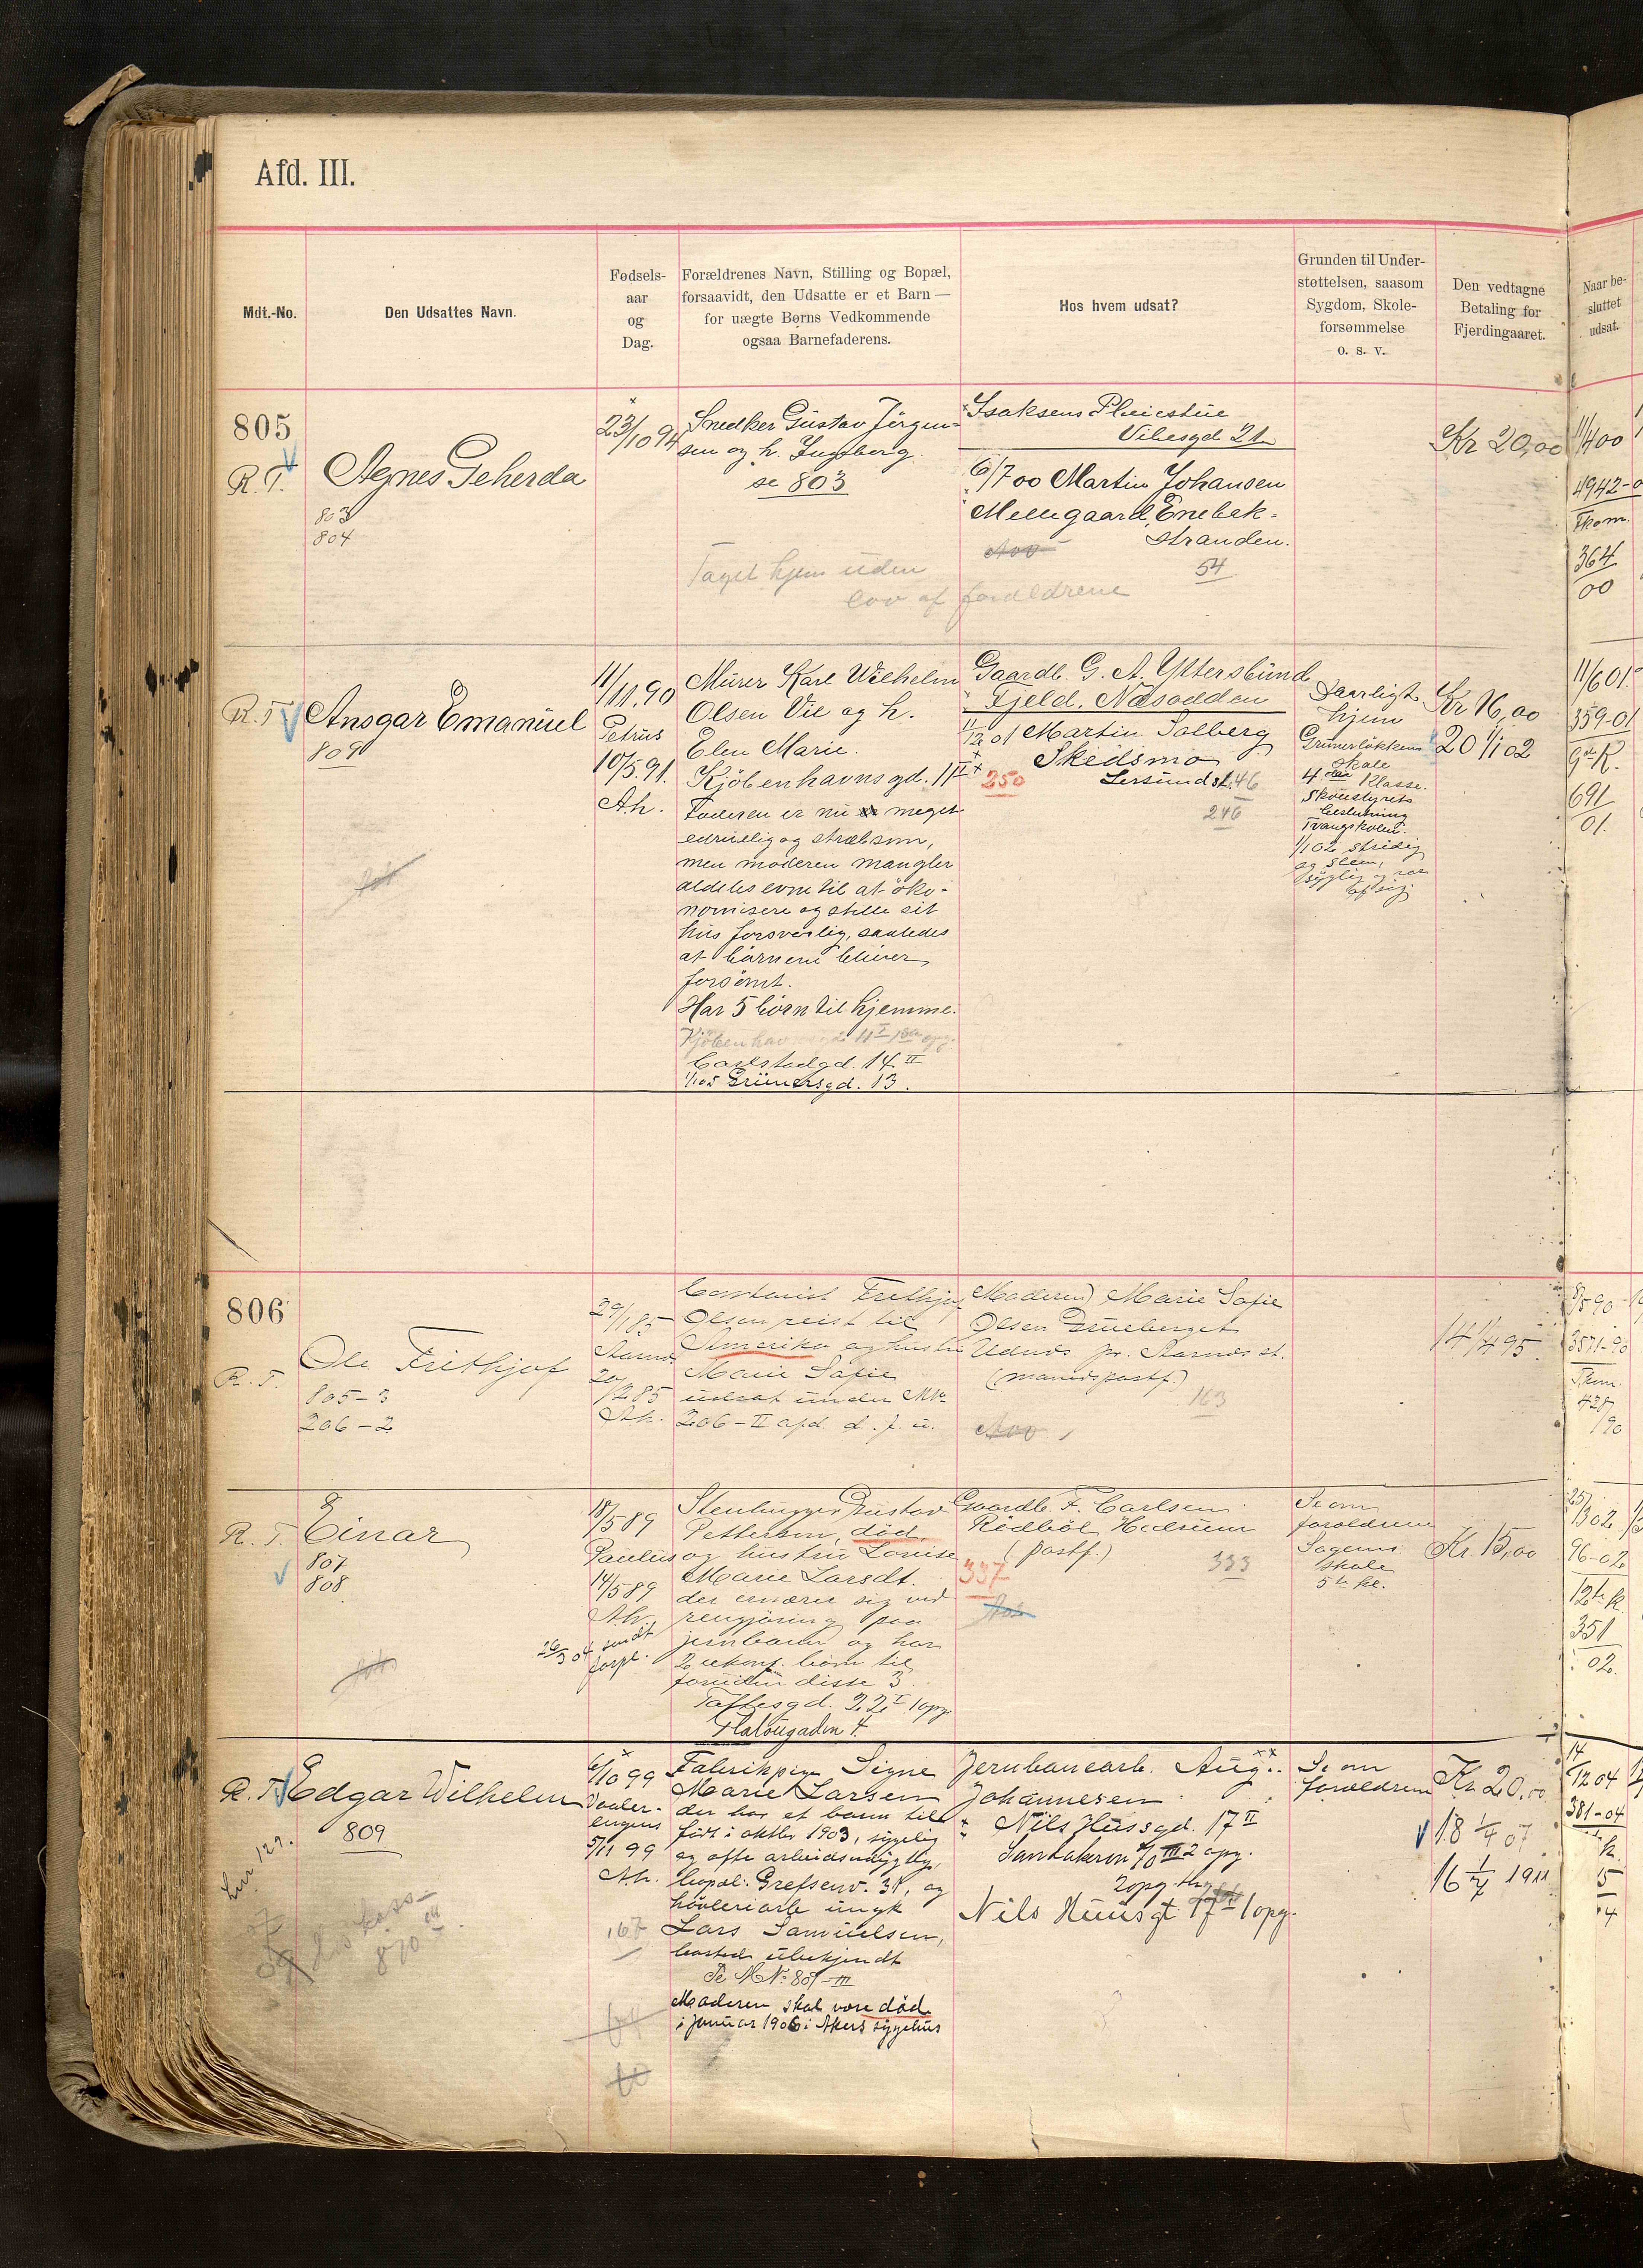 Afd. III.
Mdt.-No.
Den Udsattes Navn.
Fødsels-
aar
og
Dag.
Forældrenes Navn, Stilling og Bopæl,
forsaavidt, den Udsatte er et Barn —
for uægte Børns Vedkommende
ogsaa Barnefaderens.
Hos hvem udsat?
Grunden til Under-
støttelsen, saasom
Sygdom, Skole-
forsømmelse
o. s. v.
Den vedtagne
Betaling for
Fjerdingaaret.
Naar be-
sluttet
udsat.
805
R. T.
Agnes Geherda
803
804
23/10 94
Snedker Gustav Jörgen-
sen og h. Ingeborg.
se 803
Taget hjem uden
lov af foreldrene
Isaksens Pleiestue
Vibesgd 21
6/7 00 Martin Johansen
Enebak-
stranden.
54
Kr 20,00
11/4 00
4942-0
Fkom.
364
00
R. T.
Ansgar Emanuel
809
11/11.90
Petrus
10/5.91.
A.h.
Murer Karl Wilhelm
Olsen Vie og h.
Elen Marie.
Kjöbenhavnsgd. 11 I
Faderen er nu meget
edruelig og stræbsom,
men moderen mangler
aldeles evne til at öko-
nomisere og stelle sit
hus forsvarlig, saaledes
at börnene bliver
forsömt.
Har 5 börn til hjemme.
Carlstadgd. 14 II
1/1 05 Grünersgd. 13.
Gaardb. G. A. Yttersbund
Fjeld. Næsodden
1/12 01 Martin Solberg
Skedsmo
Lersund st. 46
250
246
Daarligt
hjem
Grünerlökkens
skole
4de Klasse.
Skolestyrets
beslutning
Tvangskolen.
1/1 02 stridig
og slem,
Kr 16,00
20 1/1 02
11/6 01.
359-01
Gr. R.
691
01.
806
R. T.
Ole Frithjof
805-3
206-2
29/1 85
Aarnæs
20/12 85
A.h.
Frithjof
Olsen reist til
Amerika og hustru
Marie Sofie
udsat under M.No
206-II afd. d. f. u.
Moderen Marie Sofie
Olsen Grueberget
Udnæs pr. Aarnæs st.
163
14 1/4 95
8/5 90
3571-90
Fkom.
428
/90
R. T.
Einar
807
808
18/5 89
Paulus
14/5 89
A.h.
26/3 04 sendt
forpl.
Stenhugger Gustav
Pettersen, död,
og hustru Lovise
Marie Larsdt.
der ernærer sig ved
rengjöring paa
jernbanen og har
2 ukonf. börn til
foruden disse 3.
Toftesgd. 22 I 1 opg.
Platougaden 4.
Gaardb. F. Carlsen
Rödböl Hedrum
(postf.)
333
337
Se om
foreldrene
Sagens
skole
5te kl.
Kr. 15,00
25/3 02
96-02
12te k.
351
02.
R. T.
Edgar Wilhelm
809
6/10 99
Vaaler-
engens
5/11 99
A.h.
167
Fabrikpige Signe
Marie Larsen
der har et barn till
födt i oktbr 1903, sygelig
og ofte arbeidsudygtig,
bopæl: Grefsenv. 31, og
hövleriarb ungk
Lars Samuelsen,
bosted ubekjendt
Se M No 809-III
Moderen skal være död
i januar 1906 i Akers sygehus
Jernbanearb. Aug.
Johannesen
Nils Husgd. 17 II
Sandakerv 10 III 2 opg.
Nils Huusgt. 17 II 1 opg.
Se om
foreldrene
Kr 20,00
18 1/4 07
16 1/4 1911
14/12 04
381-04
k.
5